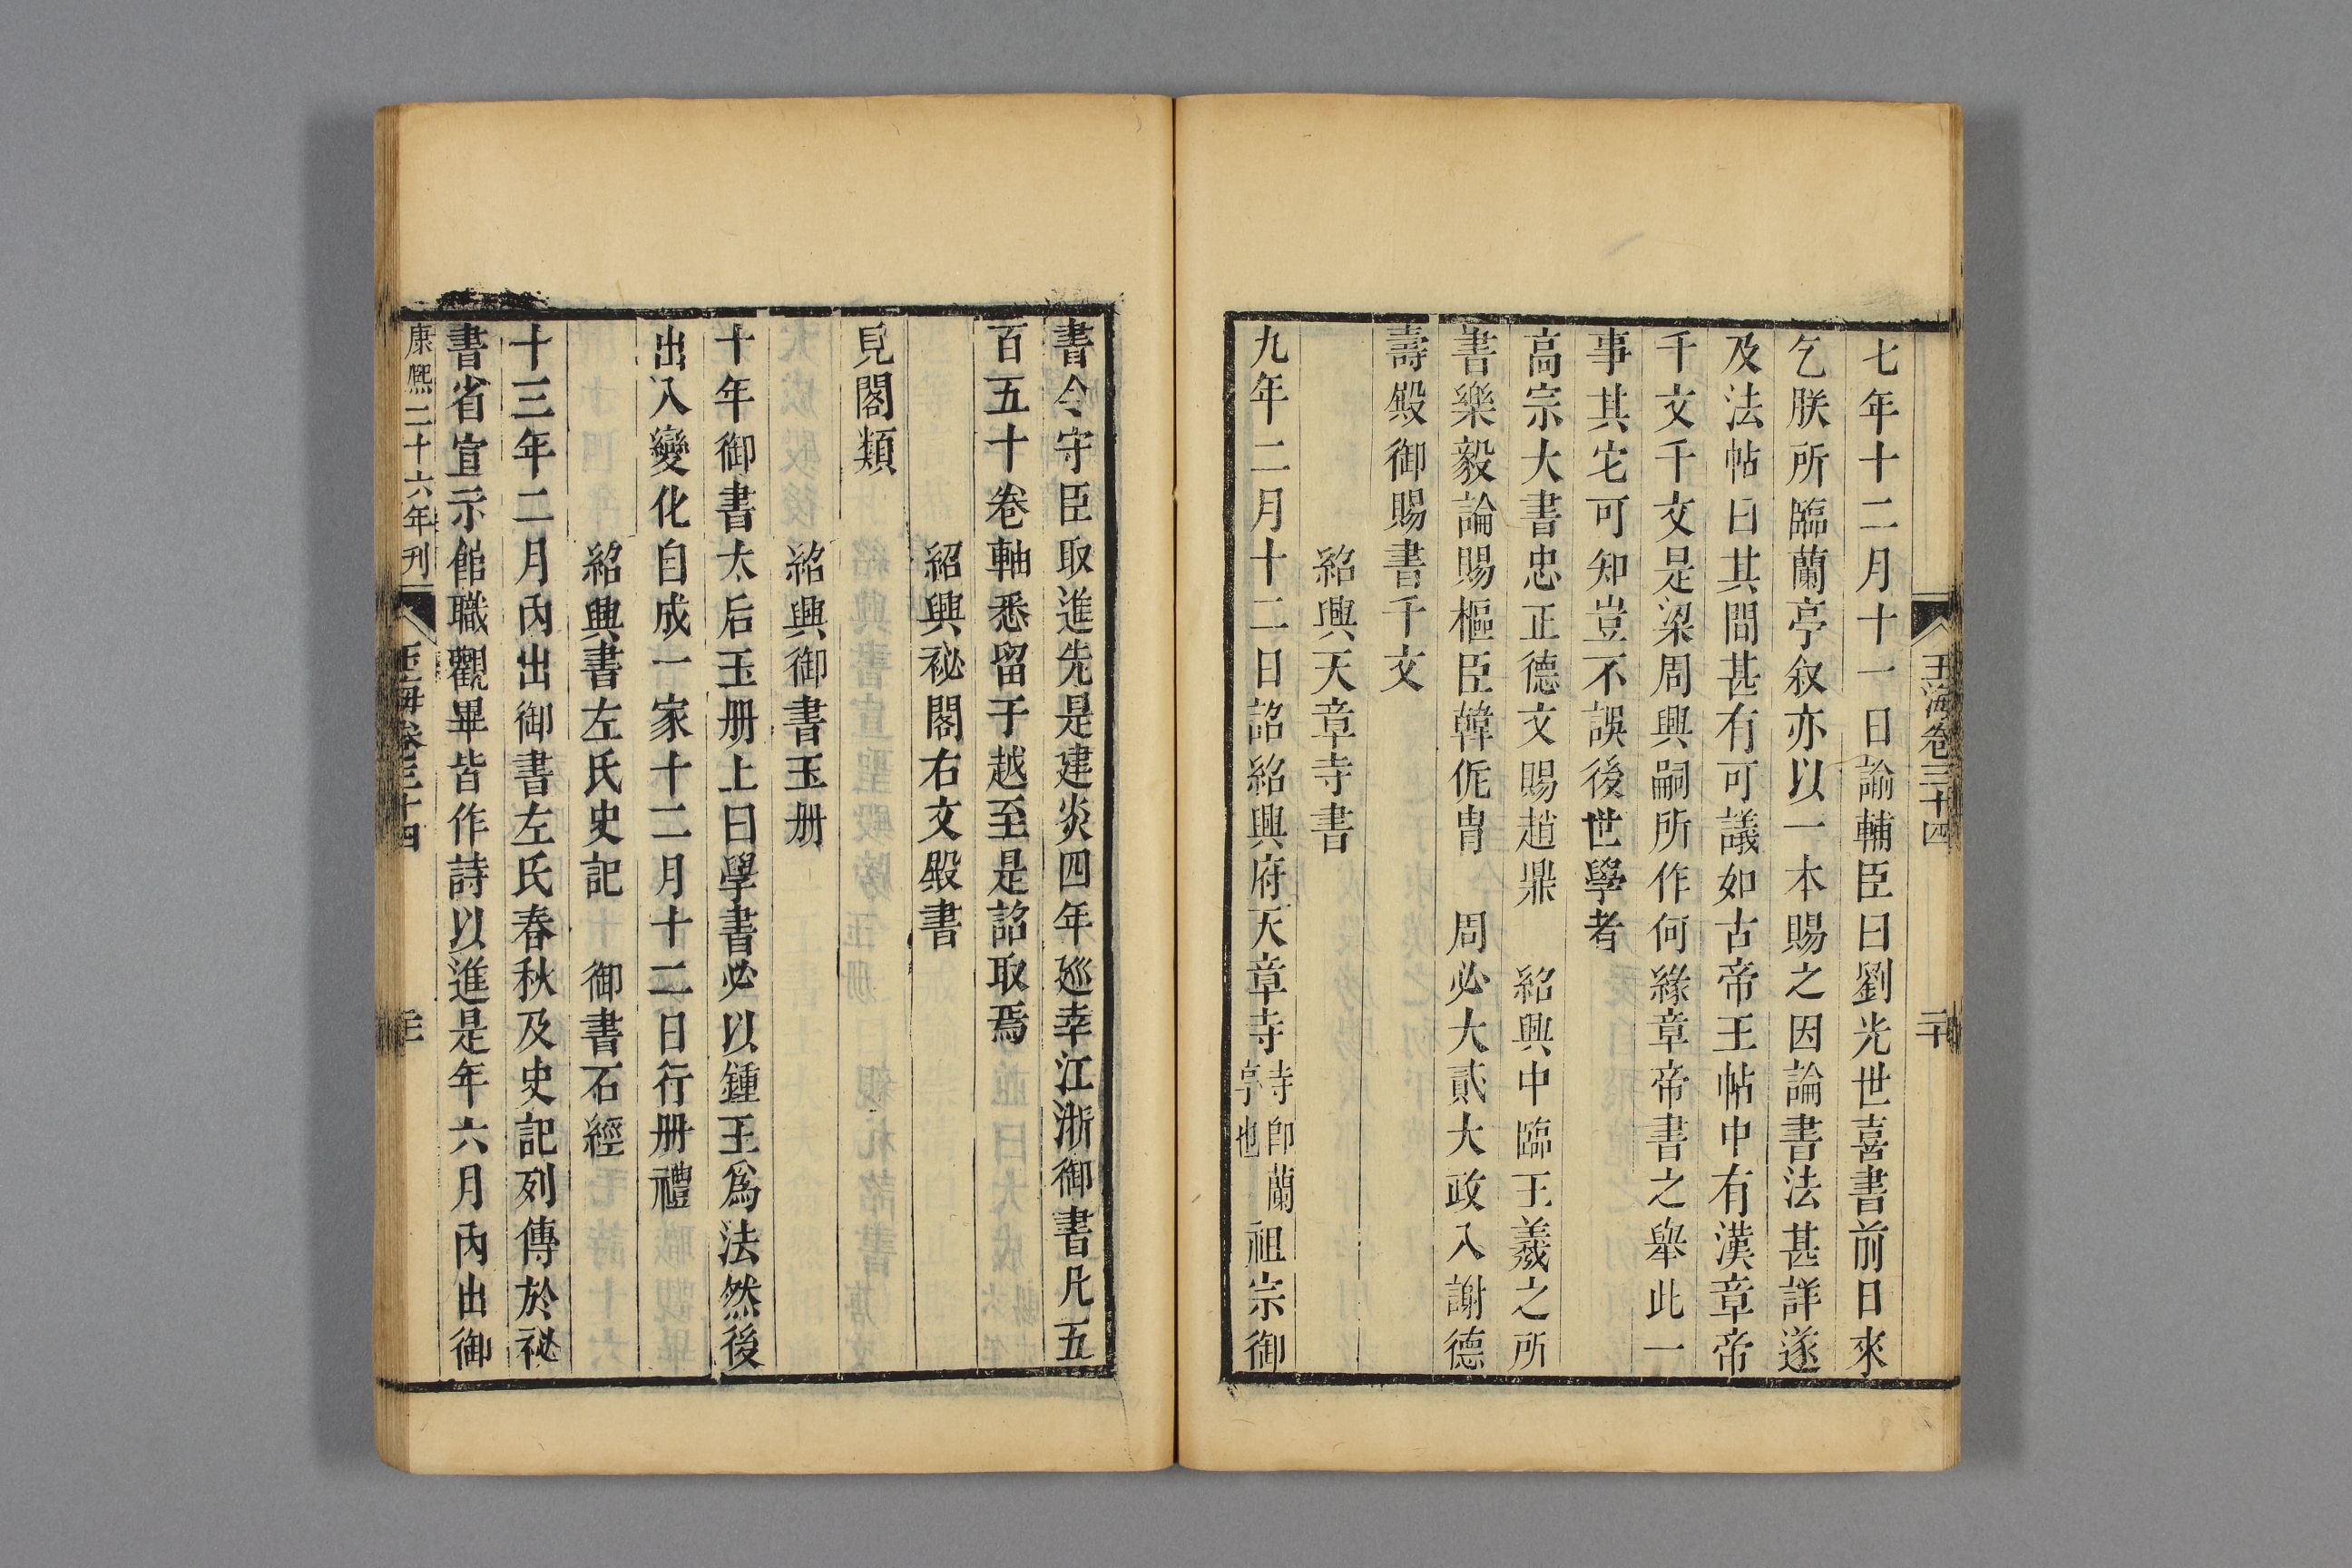 玉海卷三十四
二十
七年十二月十一日諭輔臣曰劉光世喜書前日來
乞朕所臨蘭亭叙亦以一本賜之因論書法甚詳遂
及法帖曰其間甚有可議如古帝王帖中有漢章帝
千文千文是梁周興嗣所作何緣章帝書之舉此一
事其它可知豈不誤後世學者
高宗大書忠正德文賜趙鼎 紹興中臨王羲之所
書樂毅論賜樞臣韓侂冑 周必大貳大政入謝德
壽殿御賜書千文
紹興天章寺書
九年二月十二日詔紹興府天章寺寺卽蘭亭也祖宗御
書令守臣取進先是建炎四年廵幸江浙御書凡五
百五十卷軸悉留于越至是詔取焉
紹興祕閣右文殿書
見閣類
紹興御書玉册
十年御書太后玉册上曰學書必以鍾王爲法然後
出入變化自成一家十二月十二日行册禮
紹興書左氏史記 御書石經
十三年二月內出御書左氏春秋及史記列傳於祕
書省宣示館職觀畢皆作詩以進是年六月內出御
康熙二十六年刊
玉海卷三十四